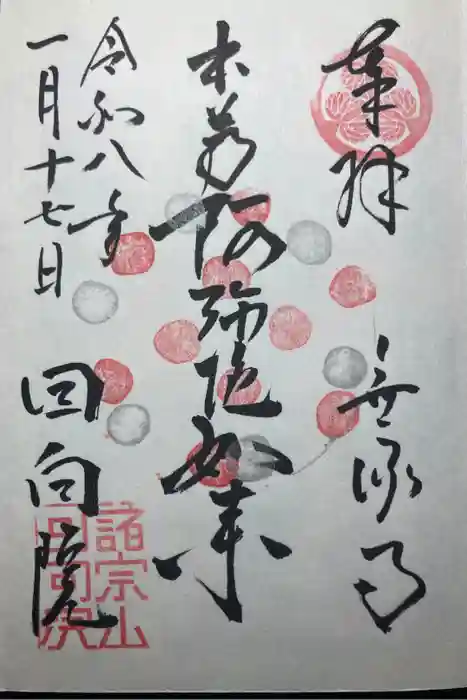 奉拝　無縁寺
本尊阿弥陀如来
令和八年
一月十七日
回向院
諸宗山
回向院